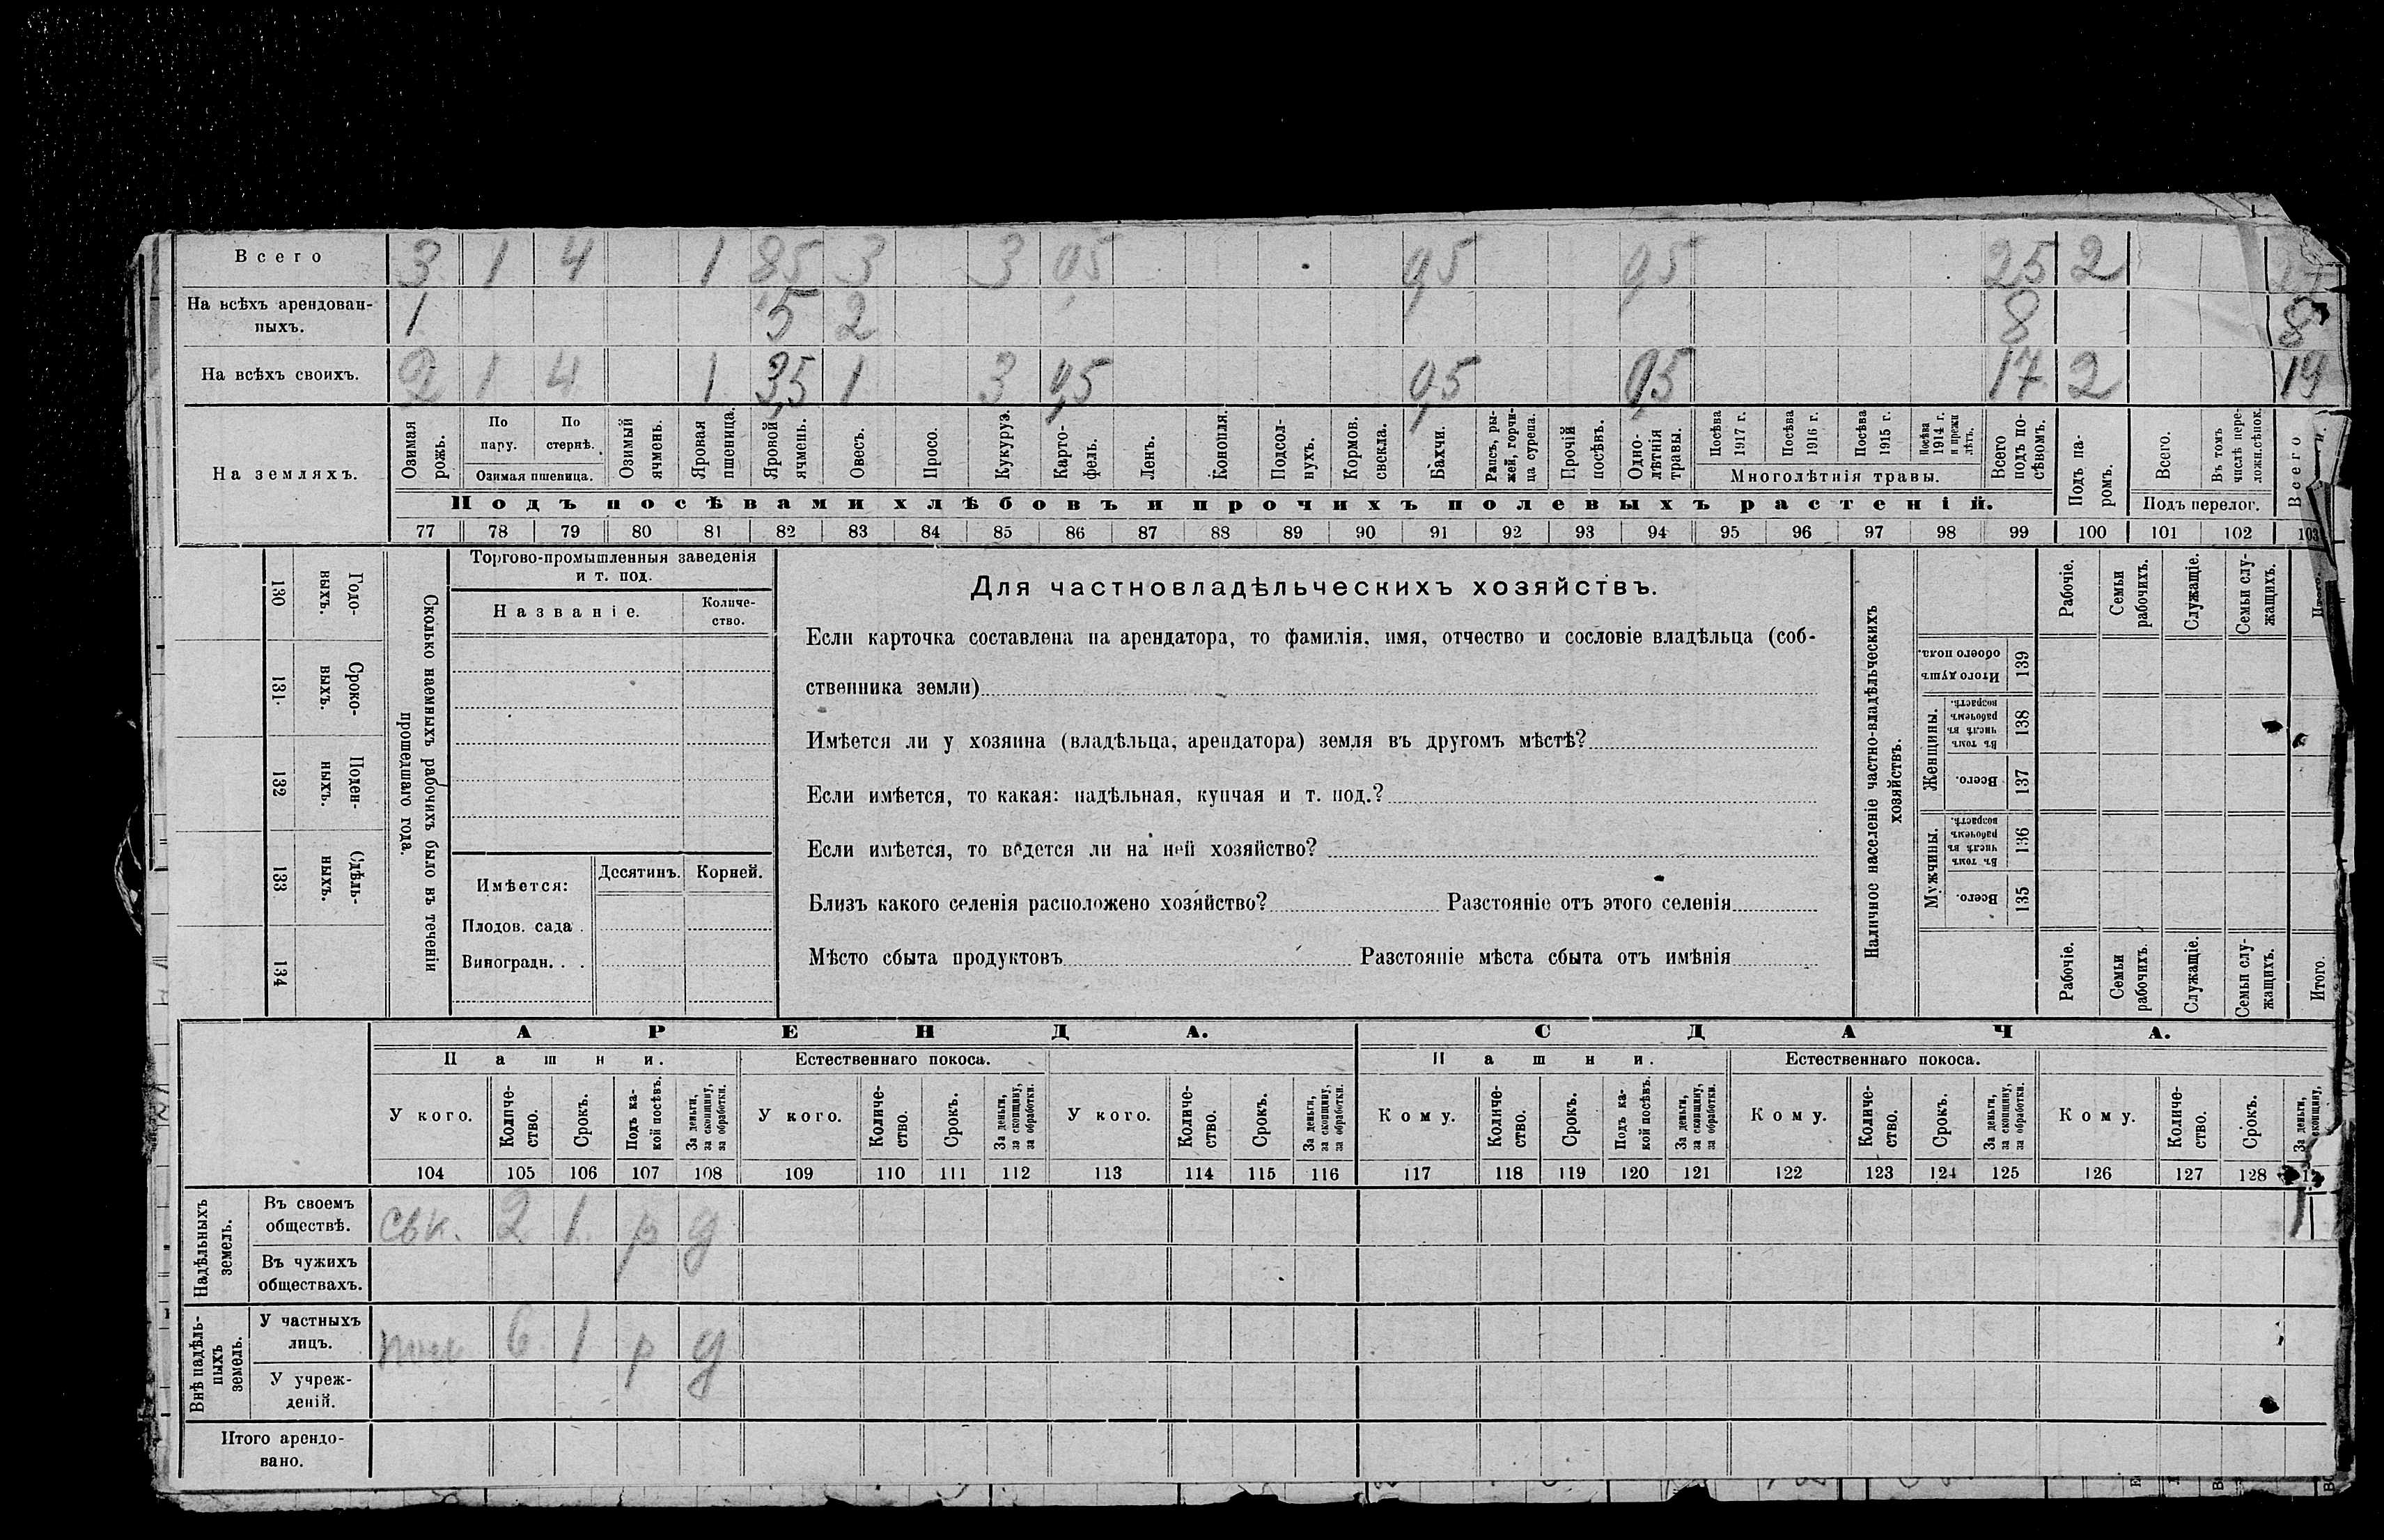 Всего 3 1 4 1 8,5 3 3 0,5 0,5 0,5 25 2 27
На всѣхъ арендован-
ныхъ. 1 5 2 8 8
На всѣхъ своихъ. 2 1 4 1 3,5 1 3 0,5 0,5 0,5 17 2 19
На земляхъ.
Озимая
рожь.
По
пару.
По
стернѣ.
Озимая пшеница.
Озимый
ячмень.
Яровая
пшеница.
Яровой
ячмень.
Овесъ.
Просо.
Кукуруз.
Карто-
фель.
Ленъ.
Конопля.
Подсол-
нухъ.
Кормов.
свекла.
Бахчи.
Рапсъ, ры-
жей, горчи-
ца сурепа.
Прочій
посѣвъ.
Одно-
лѣтнія
травы.
Посѣва
1917 г.
Посѣва
1916 г.
Посѣва
1915 г.
Посѣва
1914 г.
и прежн
лѣтъ.
Многолѣтнія травы.
Всего
подъ по-
сѣвомъ.
Подъ па-
ромъ.
Всего.
Въ томъ
числѣ пере-
ложн.сѣнок.
Подъ перелог.
Всего
Подъ посѣвами хлѣбовъ и прочихъ полевыхъ растеній.
77 78 79 80 81 82 83 84 85 86 87 88 89 90 91 92 93 94 95 96 97 98 99 100 101 102 103
130
Годо-
выхъ.
131.
Сроко-
выхъ.
132
Поден-
ныхъ.
133
Сдѣль-
ныхъ.
134
Сколько наемныхъ рабочихъ было въ теченіи
прошедшаго года.
Торгово-промышленныя заведенія
и т. под.
Названіе.
Количе-
ство.
Имѣется:
Десятинъ.
Корней.
Плодов. сада .
Виноградн. . .
Для частновладѣльческихъ хозяйствъ.
Если карточка составлена на арендатора, то фамилія, имя, отчество и сословіе владѣльца (соб-
ственника земли)
Имѣется ли у хозяина (владѣльца, арендатора) земля въ другомъ мѣстѣ?
Если имѣется, то какая: надѣльная, купчая и т. под.?
Если имѣется, то ведется ли на ней хозяйство?
Близъ какого селенія расположено хозяйство? Разстояніе отъ этого селенія
Мѣсто сбыта продуктовъ Разстояніе мѣста сбыта отъ имѣнія
Наличное населеніе частно-владѣльческихъ
хозяйствъ.
Итого душъ
обоего пола.
139
Женщины.
Въ томъ
числѣ въ
рабочемъ
возрастѣ.
138
Всего.
137
Мужчины.
Въ томъ
числѣ въ
рабочемъ
возрастѣ.
136
Всего.
135
Рабочіе.
Семьи
рабочихъ.
Служащіе.
Семьи слу-
жащихъ.
Рабочіе.
Семьи
рабочихъ.
Служащіе.
Семьи слу-
жащихъ.
Итого.
АРЕНДА. СДАЧА.
Пашни. Естественнаго покоса. Пашни. Естественнаго покоса.
У кого.
Количе-
ство.
Срокъ.
Подъ ка-
кой посѣвъ.
За деньги,
за скопщину,
за обработки.
У кого.
Количе-
ство.
Срокъ.
За деньги,
за скопщину,
за обработки.
У кого.
Количе-
ство.
Срокъ.
За деньги,
за скопщину,
за обработки.
Кому.
Количе-
ство.
Срокъ.
Подъ ка-
кой посѣвъ.
За деньги,
за скопщину,
за обработки.
Кому.
Количе-
ство.
Срокъ.
За деньги,
за скопщину,
за обработки.
Кому.
Количе-
ство.
Срокъ.
За деньги,
скопщину,
104 105 106 107 108 109 110 111 112 113 114 115 116 117 118 119 120 121 122 123 124 125 126 127 128
Надѣльныхъ
земель.
Въ своемъ
обществѣ. 2 1 р д
Въ чужихъ
обществахъ.
Внѣ надѣль-
ныхъ
земель.
У частныхъ
лицъ. 6 1 р д
У учреж-
деній.
Итого арендо-
вано.